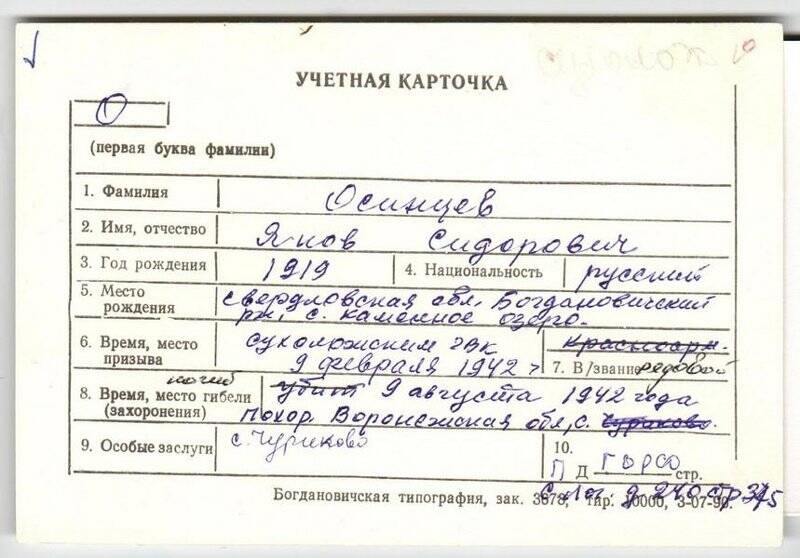 УЧЕТНАЯ КАРТОЧКА
О
(первая буква фамилии)
1. Фамилия Осинцев
2. Имя, отчество Яков Сидорович
3. Год рождения 1919 4. Национальность русский
5. Место рождения Свердловская обл, Богдановичский
рн, с. Каменное озеро.
6. Время, место призыва Сухоложским РВК
9 февраля 1942 г
Красноарм.
7. В/звание рядовой
погиб
8. Время, место гибели (захоронения) убит 9 августа 1942 года
похор. Воронежская обл, с. Чуриково.
9. Особые заслуги с. Чуриково
10.
П Д ГОРСО стр.
д. 240 стр 345
Богдановичская типография, зак. 3678, тир. 10000, 3-07-90.